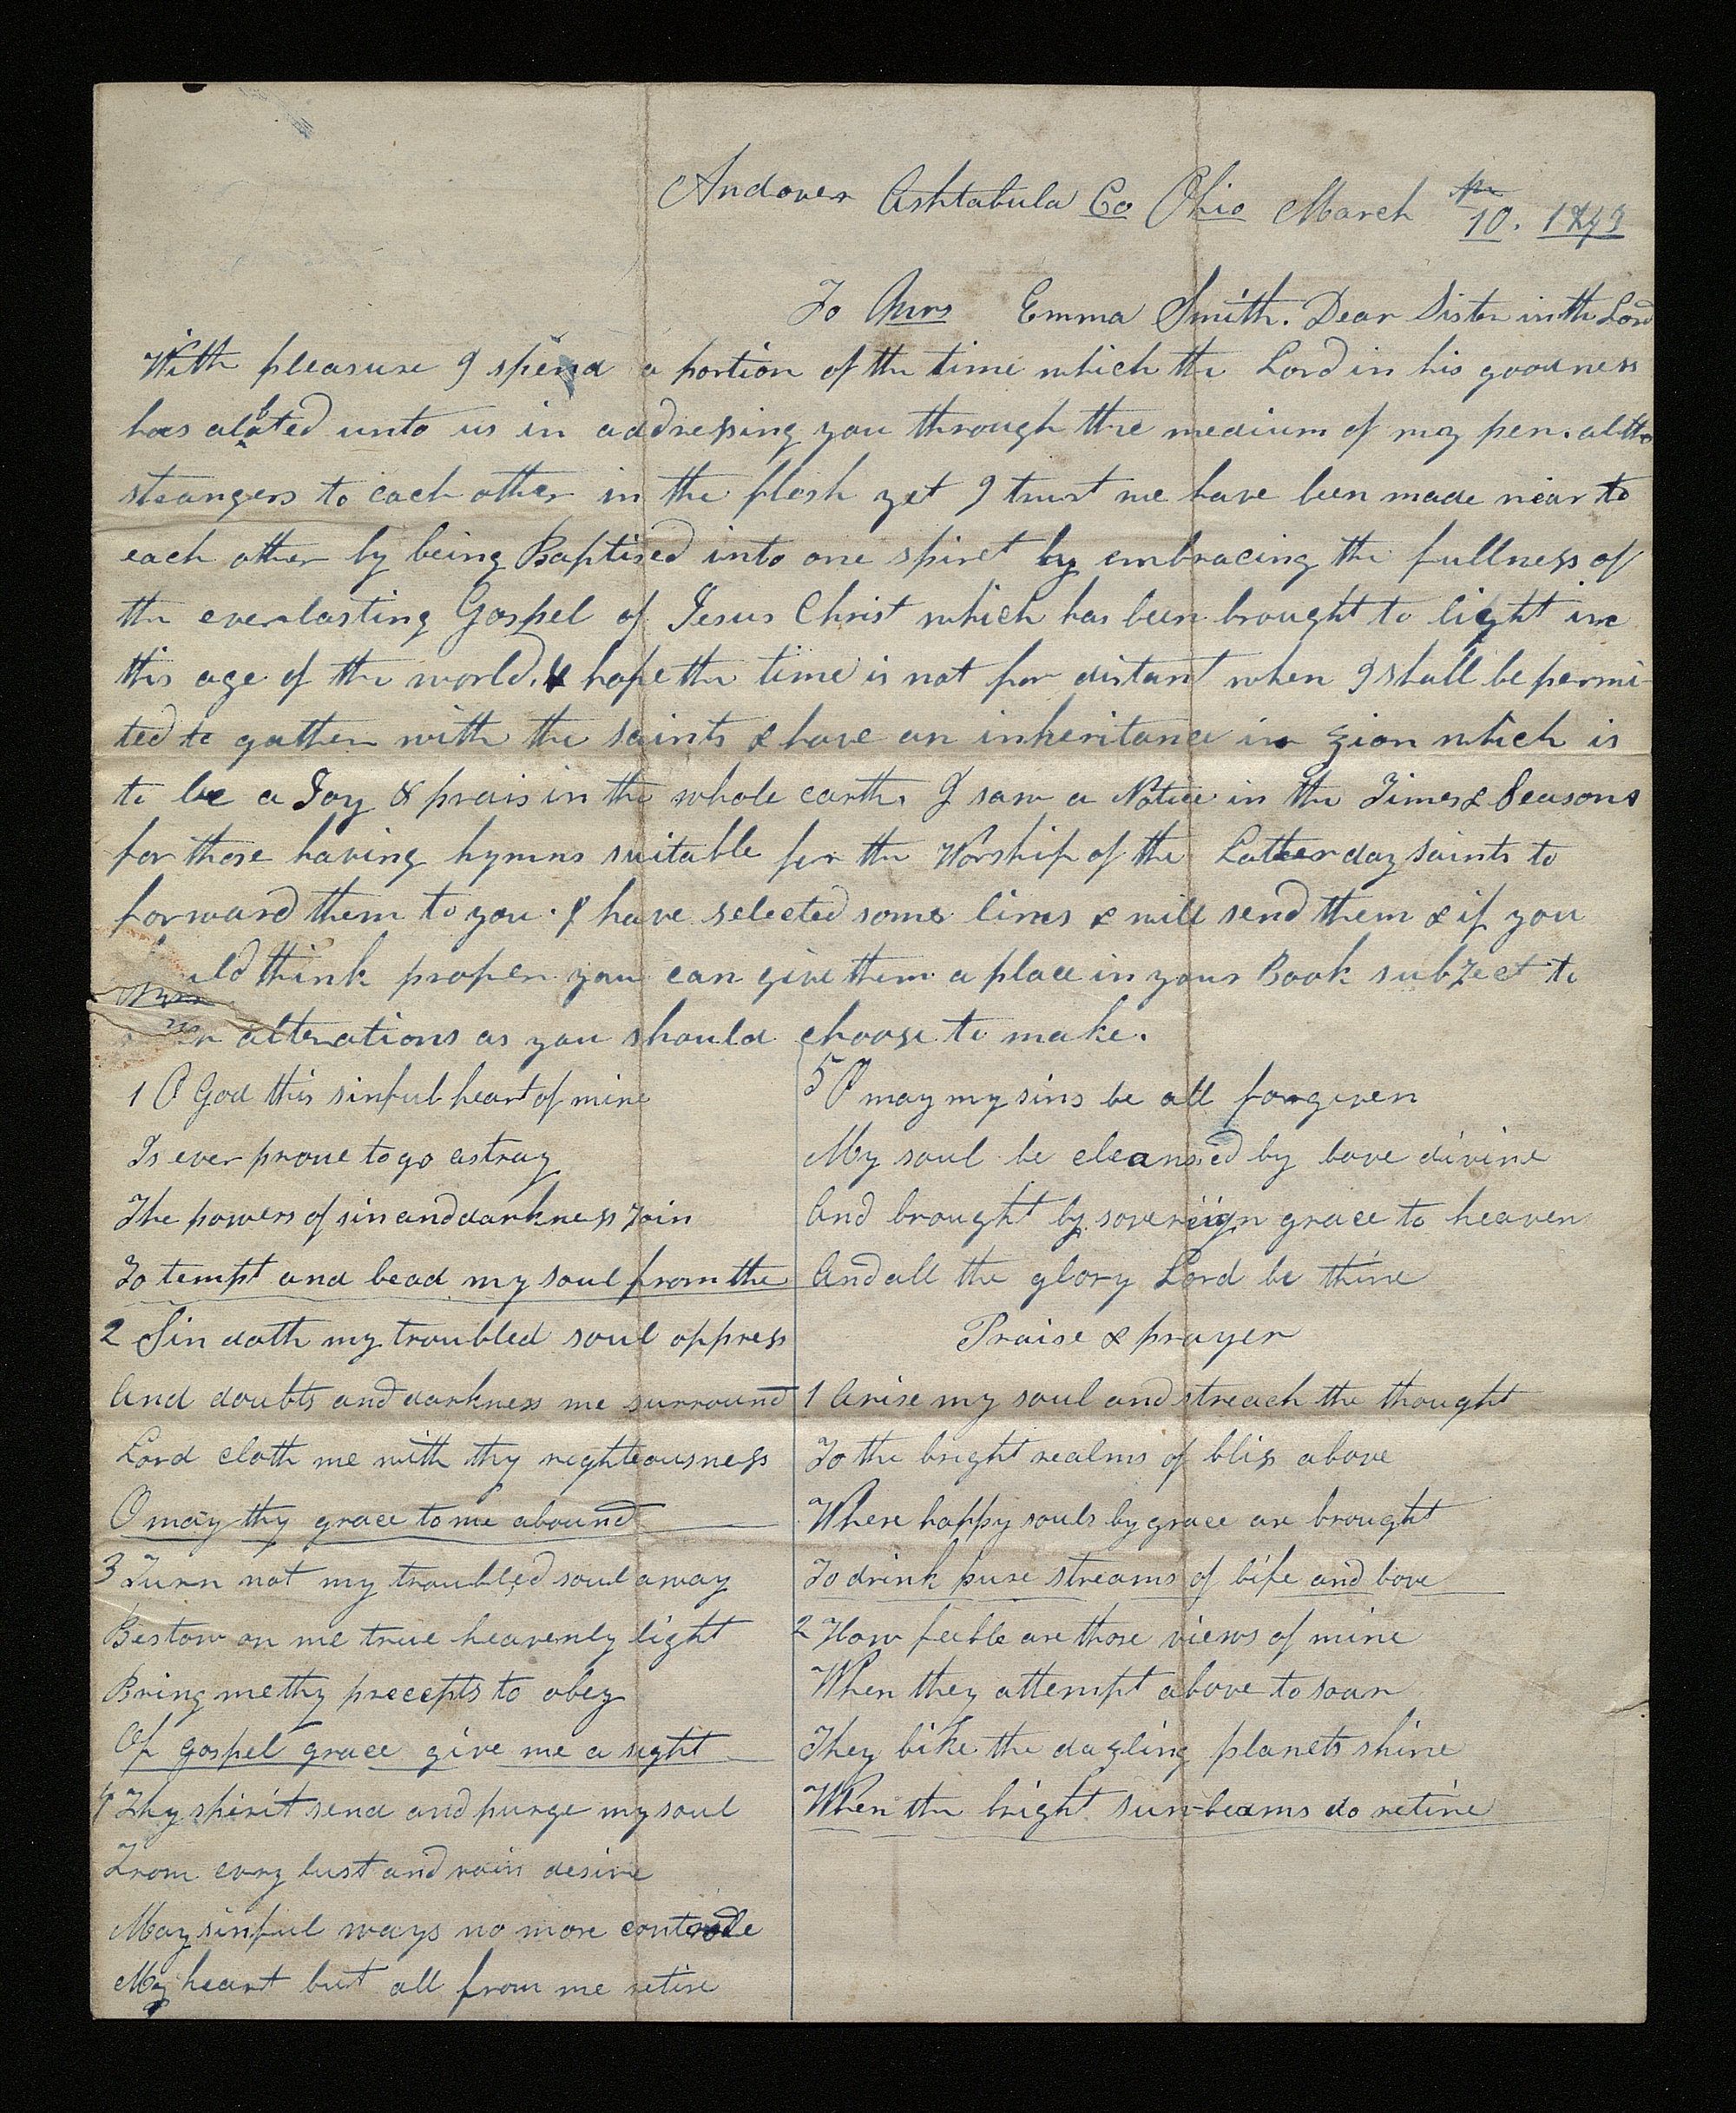 Andover Ashtabula Co Ohio March 10. 1843
To Mrs Emma Smith. Dear Sister in the Lord
With pleasure I spend a portion of the time which the Lord in his goodness
has aloted unto us in addressing you through the medium of my pen. altho
strangers to each other in the flesh yet I trust we have been made near to
each other by being Baptised into one spiret by embracing the fullness of
the everlasting Gospel of Jesus Christ which has been brought to light in
this age of the world. & hope the time is not far distant when I shall be permi-
ted to gather with the saints & have an inheritance in Zion which is
to be a Joy & prais in the whole earth. I saw a Notice in the Times & Seasons
for those having hymns suitable for the Worship of the Latter day saints to
forward them to you. I have selected some lines & will send them & if you
uld think proper you can give them a place in your Book subject to
alterations as you should choose to make.
1 O God this sinful heart of mine
Is ever prone to go astray
The powers of sin and darkness Join
To tempt and lead my soul from the
2 Sin doth my troubled soul oppress
And doubts and darkness me surround
Lord cloth me with thy righteousness
O may thy grace to me abound
3 Turn not my troubled soul away
Bestow on me true heavenly light
Bring me thy precepts to obey
Of gospel grace give me a sight
4 Thy spirit send and purge my soul
From evry lust and vain desire
May sinful ways no more controle
My heart but all from me retire
5 O may my sins be all forgiven
My soul be cleansed by love divine
And brought by sovereign grace to heaven
And all the glory Lord be thine
Praise & prayer
1 Arise my soul and streach the thought
To the bright realms of bliss above
Where happy souls by grace are brought
To drink pure streams of life and love
2 How feeble are those views of mine
When they attempt above to soar
They like the dazling planets shine
When the bright sun-beams do retire